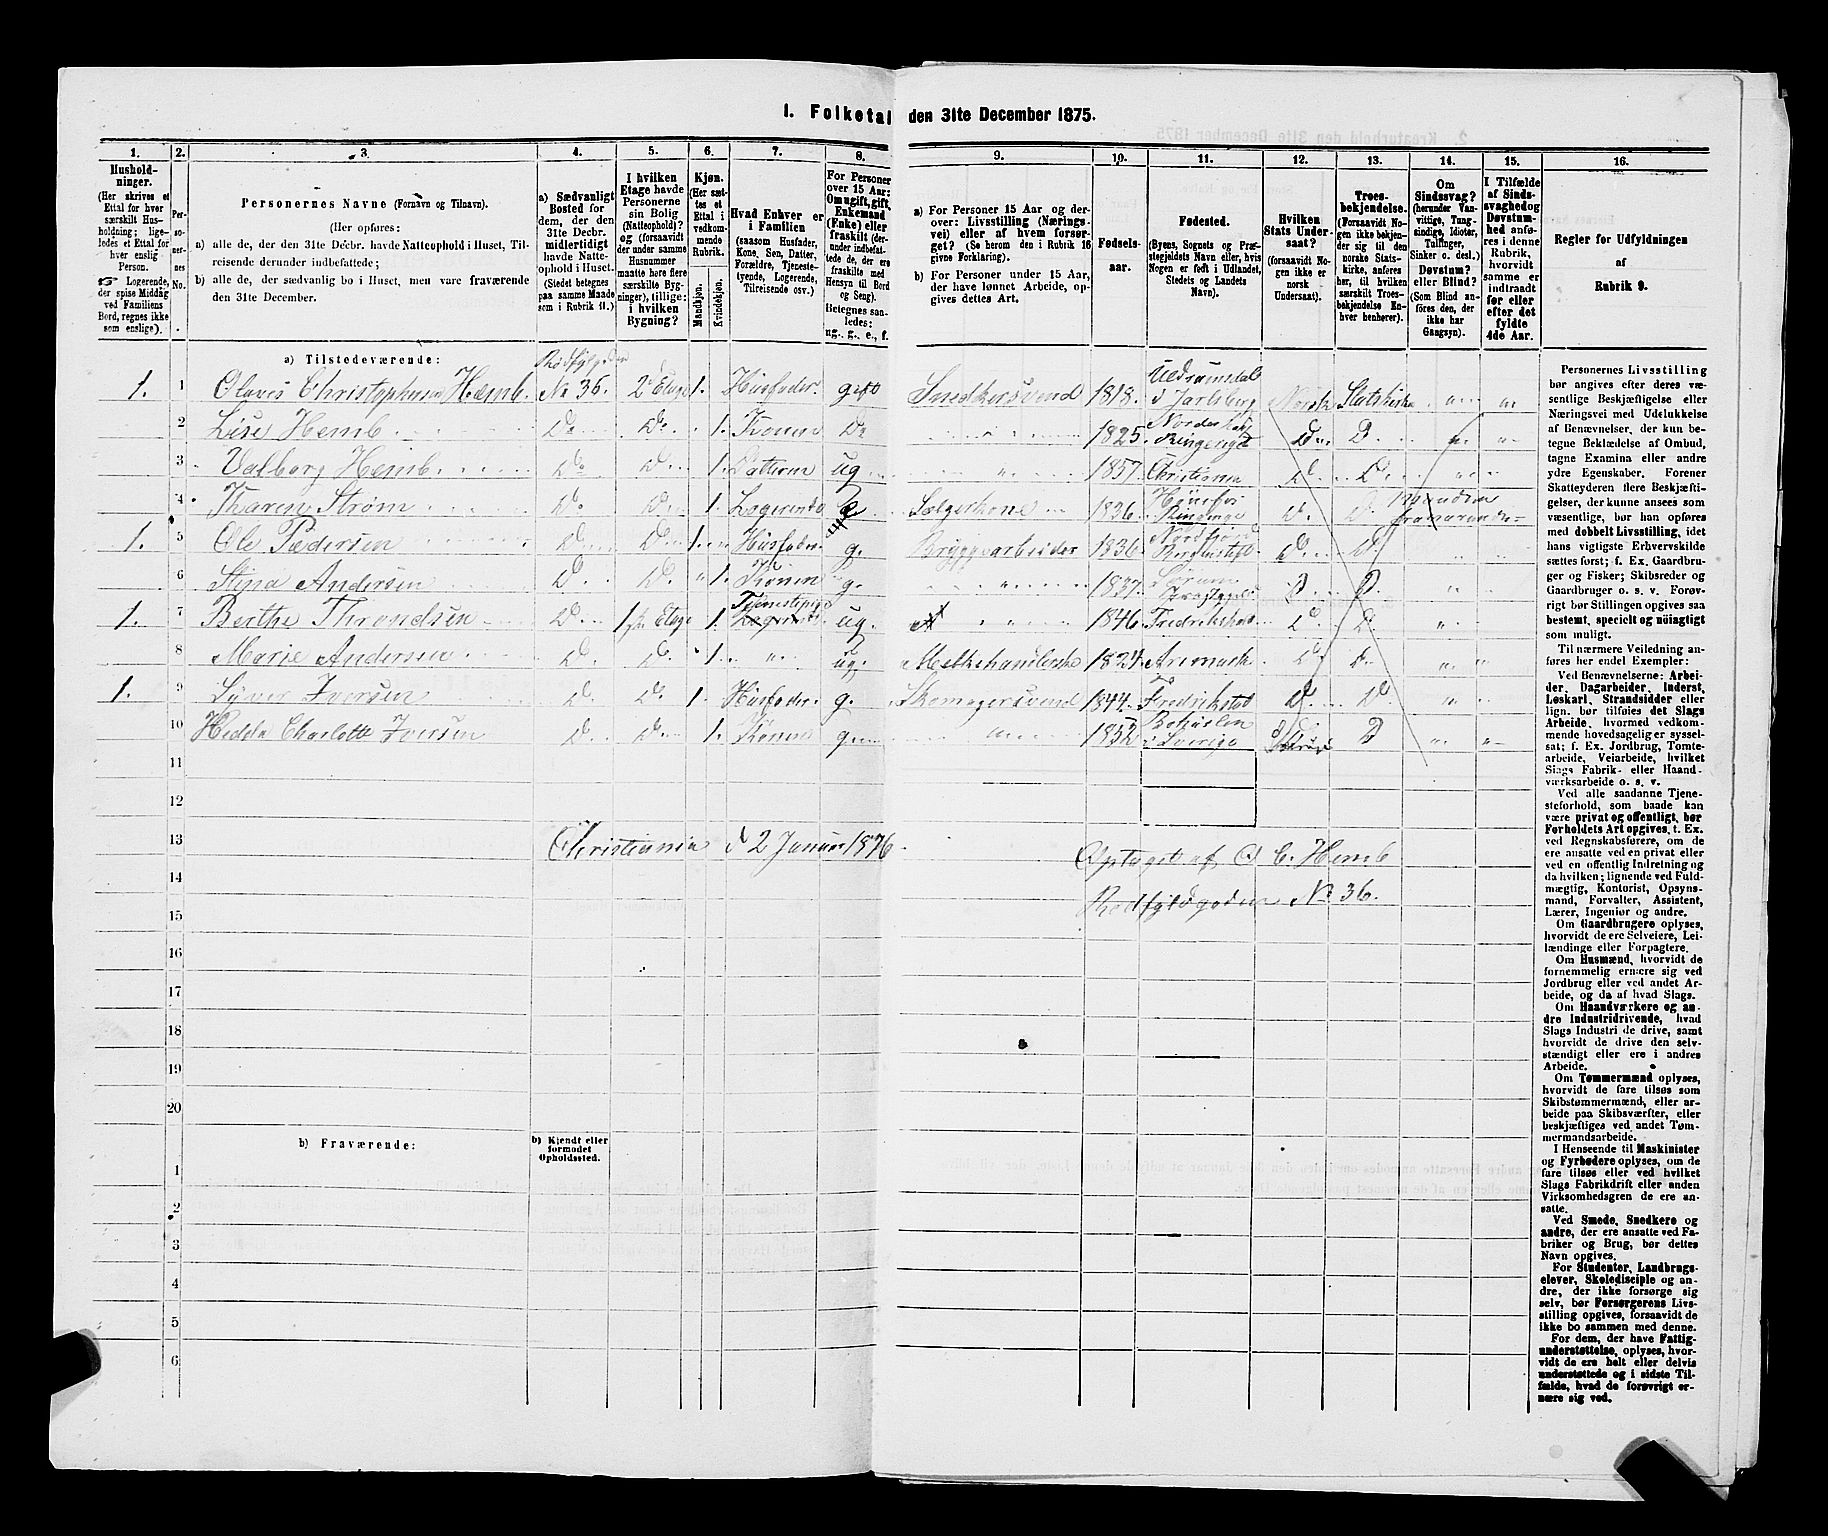 1. Folketal den 31te December 1875.
1. 2. 3. 4. 5. 6. 7. 8. 9. 10. 11. 12. 13. 14. 15. 16.
Husholdninger.
(Her skrives et
Ettal for hver
særskilt Husholdning;
ligeledes et Ettal for
hver enslig
Person.
☞ Logerende,
der spise Middag
ved Familiens
Bord, regnes ikke
som enslige).
Personernes No.
Personernes Navne (Fornavn og Tilnavn).
(Her opføres:
a) alle de, der den 31te Decbr. havde Natteophold i Huset, Tilreisende derunder indbefattede;
b) alle de, der sædvanlig bo i Huset, men vare fraværende
den 31te December.
a) Sædvanligt
Bosted for
dem, der den
31te Decbr.
midlertidigt
havde Natteophold i Huset.
(Stedet betegnes
paa samme Maade
som i Rubrik 11.)
I hvilken
Etage havde
Personerne
sin Bolig
(Natteophold)?
og (forsaavidt
der under samme
Husnummer
maatte høre flere
særskilte Bygninger), tillige:
i hvilken
Bygning?
Kjøn.
(Her sættes et
Ettal i
vedkommende
Rubrik.
Mandkjøn.
Kvindekjøn.
Hvad Enhver er
i Familien
(saasom Husfader,
Kone, Søn, Datter,
Forældre, Tjenestetyende, Logerende,
Tilreisende osv.)
For Personer
over 15 Aar:
Om ugift, gift,
Enkemand
(Enke) eller
fraskilt (derunder indbefattede de, der ere
fraskilte med
Hensyn til Bord
og Seng).
Betegnes saaledes:
ug., g., e., f.
a) For Personer 15 Aar og derover: Livsstilling (Næringsvei) eller af hvem forsørget? (Se herom den i Rubrik 16
givne Forklaring).
b) For Personer under 15 Aar,
der have lønnet Arbeide, opgives dettes Art.
Fødselsaar.
Fødested.
(Byens, Sognets og Præstegjeldets Navn eller, hvis
Nogen er født i Udlandet,
Stedets og Landets
Navn).
Hvilken
Stats Undersaat?
(forsaavidt Nogen ikke er
norsk
Undersaat).
Troesbekjendelse.
(Forsaavidt Nogen ikke bekjender sig til den
norske Statskirke, anføres
her, til hvilken
særskilt Troesbekjendelse Enhver henhører).
Om
Sindssvag?
(herunder Vanvittige, Tungsindige, Idioter,
Tullinger,
Sinker o. desl.)
Døvstum?
eller Blind?
(Som Blind anføres den, der
ikke har
Gangsyn).
I Tilfælde
af Sindssvaghed og
Døvstumhed anføres i denne
Rubrik,
hvorvidt
samme er
indtraadt
før eller
efter det
fyldte
4de Aar.
Regler for Udfyldningen
af
Rubrik 9.
a) Tilstedeværende:
1. 1 Olaves Christophersen Hæmb. No 36. 2 Etage 1. Husfader. gift Snedkersvend 1818. i Jarlsberg Norsk Statskirke
2 Lise Hemb Do. Do. 1. Konen Do 1825. Do. D.
3 Valborg Hemb Do Do. 1. Datteren ug 1857. Christiania D. D.
4 Karen Strøm Do Do. 1. Logerende e. 1826. Hønefos D. D.
1. 5 Ole Pedersen D. D. 1. Husfader. g. Bryggearbeider 1836. D. D.
6 Stina Andersen D. D. 1. Konen g. 1837. D. D.
1. 7 Berthe Throndsen D. 1ste Etage 1. Tjenestepige ug. 1846. Fredrikshald D. D.
8 Marie Andersen D. D. 1. ug. Melkehandlerske Aremark D. D.
1. 9 Syver Iversen D. D. 1. Husfader. g. Skomagersvend 1844. Fredrikstad D. D.
10 Hedda Charlotte Iversen D. D. 1. Konen g. 1852. Bohuslen i Sverige D
11
12
13 Christiania d 2 Januar 1876. Optaget af O C. Hemb
14 Rodfyldgaden No 36.
15
16
17
18
19
20
b) Fraværende:
b) Kjendt eller
formodet
Opholdssted.
1
2
3
4
5
6
Personernes Livsstilling
bør angives efter deres væsentlige Beskjæftigelse eller
Næringsvei med Udelukkelse
af Benævnelser, der kun betegne Beklædelse af Ombud,
tagne Examina eller andre
ydre Egenskaber. Forener
Skatteyderen flere Beskjæftigelser, der kunne ansees som
væsentlige, bør han opføres
med dobbelt Livsstilling, idet
hans vigtigste Erhvervskilde
sættes først; f. Ex. Gaardbruger og Fisker; Skibsreder og
Gaardbruger o. s. v. Forøvrigt bør Stillingen opgives saa
bestemt, specielt og nøiagtigt
som muligt.
Til nærmere Veiledning anføres her endel Exempler:
Ved Benævnelserne: Arbeider, Dagarbeider, Inderst,
Løskarl, Strandsidder eller
lign. bør tilføies det Slags
Arbeide, hvormed vedkommende hovedsagelig er sysselsat; f. Ex. Jordbrug, Tomtearbeide, Veiarbeide, hvilket
Slags Fabrik- eller Haandværksarbeide o. s. v.
Ved alle saadanne Tjenesteforhold, som baade kan
være privat og offentligt, bør
Forholdets Art opgives, t. Ex.
ved Regnskabsførere, om de
ere ansatte ved en privat eller
ved en offentlig Indretning og
da hvilken; lignende ved Fuldmægtig, Kontorist, Opsynsmand, Forvalter, Assistent,
Lærer, Ingeniør og andre.
Om Gaardbrugere oplyses,
hvorvidt de ere Selveiere, Leilændinge eller Forpagtere.
Om Husmænd, hvorvidt de
fornemmelig ernære sig ved
Jordbrug eller ved andet Arbeide, og da af hvad Slags.
Om Haandværkere og andre Industridrivende, hvad
Slags Industri de drive, samt
hvorvidt de drive den selvstændigt eller ere i andres
Arbeide.
Om Tømmermænd oplyses,
hvorvidt de fare tilsøs som
Skibstømmermænd, eller arbeide paa Skibsværfter, eller
beskjæftiges ved andet Tømmermandsarbeide.
I Henseende til Maskinister
og Fyrbødere oplyses, om de
fare tilsøs eller ved hvilket
Slags Fabrikdrift eller anden
Virksomhedsgren de ere ansatte.
Ved Smede, Snedkere og
andre, der ere ansatte ved Fabriker og Brug, bør dettes
Navn opgives.
For Studenter, Landbrugselever, Skoledisciple og andre, der ikke forsørge sig
selv, bør Forsørgerens Livsstilling opgives, forsaavidt de
ikke bo sammen med denne.
For dem, der have Fattigunderstøttelse, oplyses, hvorvidt de ere helt eller delvis
understøttede og i sidste Tilfælde, hvad de forøvrigt ernære sig ved.